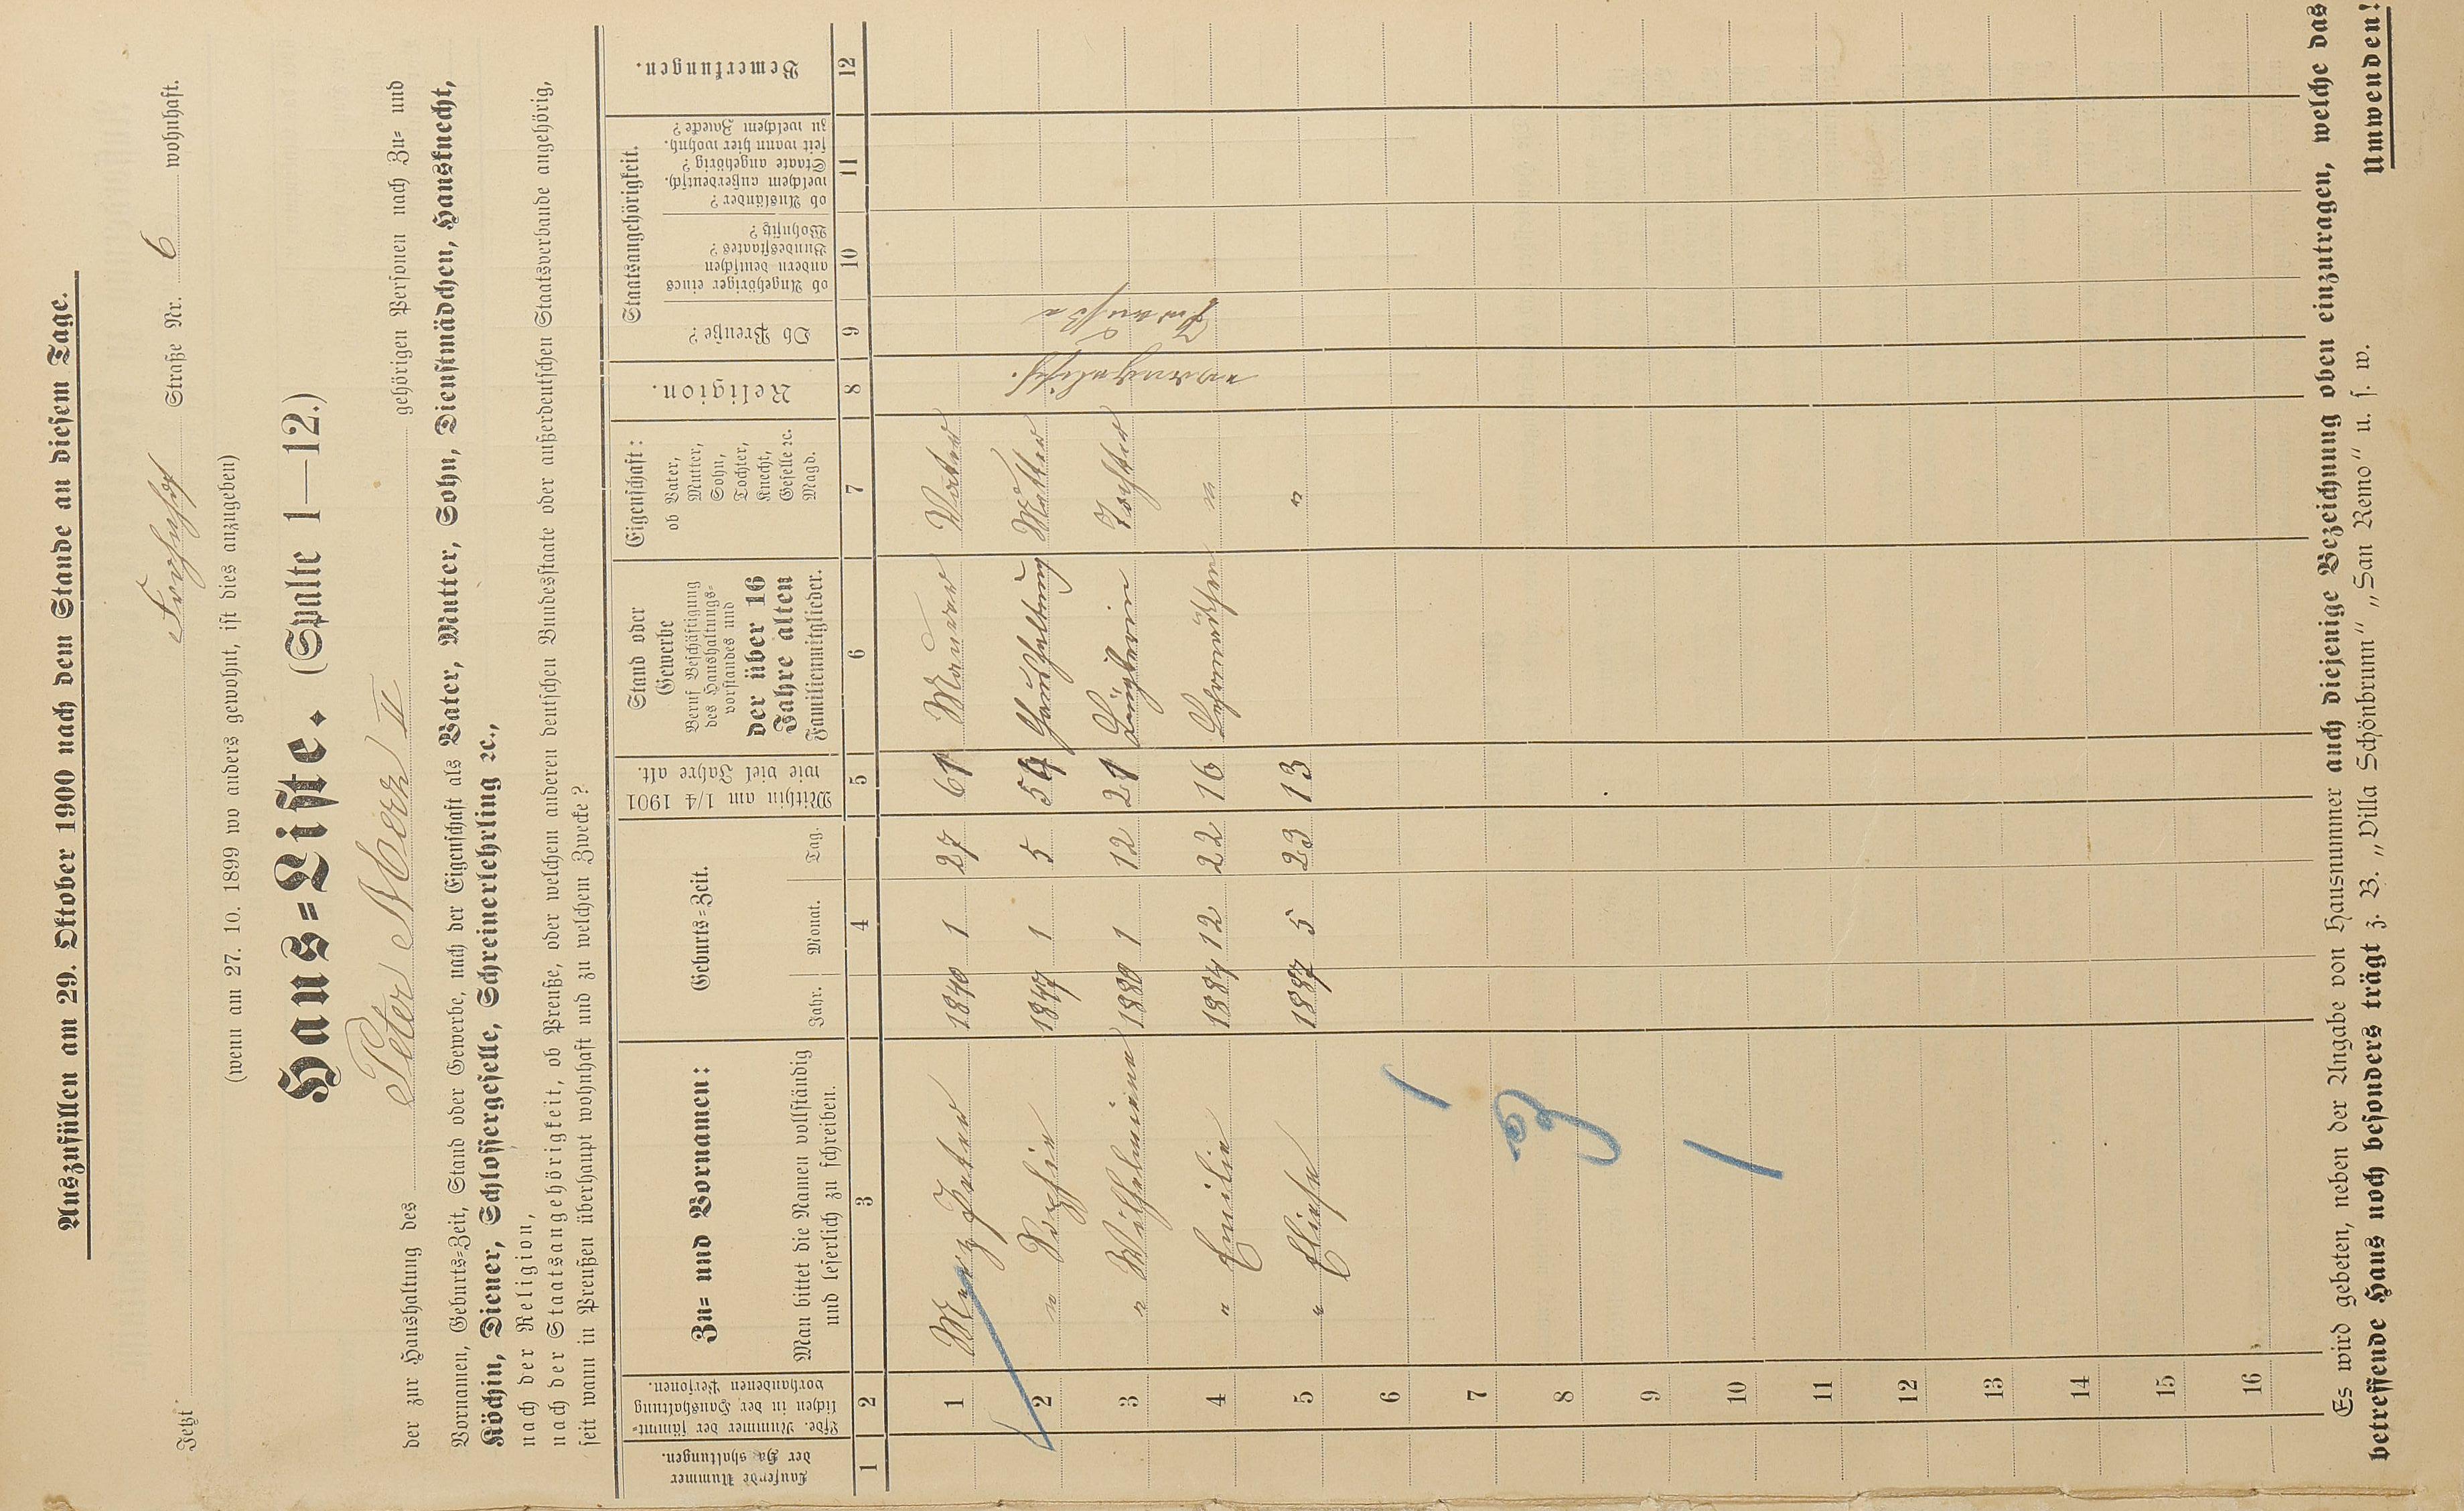 Auszufüllen am 29. Oktober 1900 nach dem Stande an diesem Tage.
Jetzt Straße Nr. 6 wohnhaft.
(wenn am 27. 10. 1899 wo anders gewohnt, ist dies anzugeben)
Haus=Liste. (Spalte 1—12.)
der zur Haushaltung des Peter Merz II gehörigen Personen nach Zu= und
Vornamen, Geburts=Zeit, Stand oder Gewerbe, nach der Eigenschaft als Vater, Mutter, Sohn, Dienstmädchen, Hausknecht,
Köchin, Diener, Schlossergeselle, Schreinerlehrling ꝛc.,
nach der Religion,
nach der Staatsangehörigkeit, ob Preuße, oder welchem anderen deutschen Bundesstaate oder außerdeutschen Staatsverbande angehörig,
seit wann in Preußen überhaupt wohnhaft und zu welchem Zwecke?
Laufende Nummer
der Haushaltungen.
Lfde. Nummer der sämmt=
lichen in der Haushaltung
vorhandenen Personen.
Zu= und Vornamen:
Man bittet die Namen vollständig
und leserlich zu schreiben.
Geburts=Zeit.
Jahr. Monat. Tag.
Mithin am 1/4 1901
wie viel Jahre alt.
Stand oder
Gewerbe
Beruf Beschäftigung
des Haushaltungs=
vorstandes und
der über 16
Jahre alten
Familienmitglieder.
Eigenschaft:
ob Vater,
Mutter,
Sohn,
Tochter,
Knecht,
Geselle ꝛc.
Magd.
Religion.
Staatsangehörigkeit.
Ob Preuße?
ob Angehöriger eines
andern deutschen
Bundesstaates?
Wohnsitz?
ob Ausländer?
welchem außerdeutsch.
Staate angehörig?
seit wann hier wohnh.
zu welchem Zwecke?
Bemerkungen.
1 2 3 4 5 6 7 8 9 10 11 12
1 Merz Peter 1840 1 27 61 Maurer Vater
2 " Sophie 1847 1 5 54 Haushaltung Mutter evangelisch. Preuße
3 " Wilhelmine 1880 1 12 21 Büglerin Tochter
4 " Emilie 1884 12 22 16 "
5 " Eliese 1887 5 23 13 "
6
7
8
9
10
11
12
13
14
15
16
Es wird gebeten, neben der Angabe von Hausnummer auch diejenige Bezeichnung oben einzutragen, welche das
betreffende Haus noch besonders trägt z. B. „Villa Schönbrunn" „San Remo" u. s. w.
Umwenden!